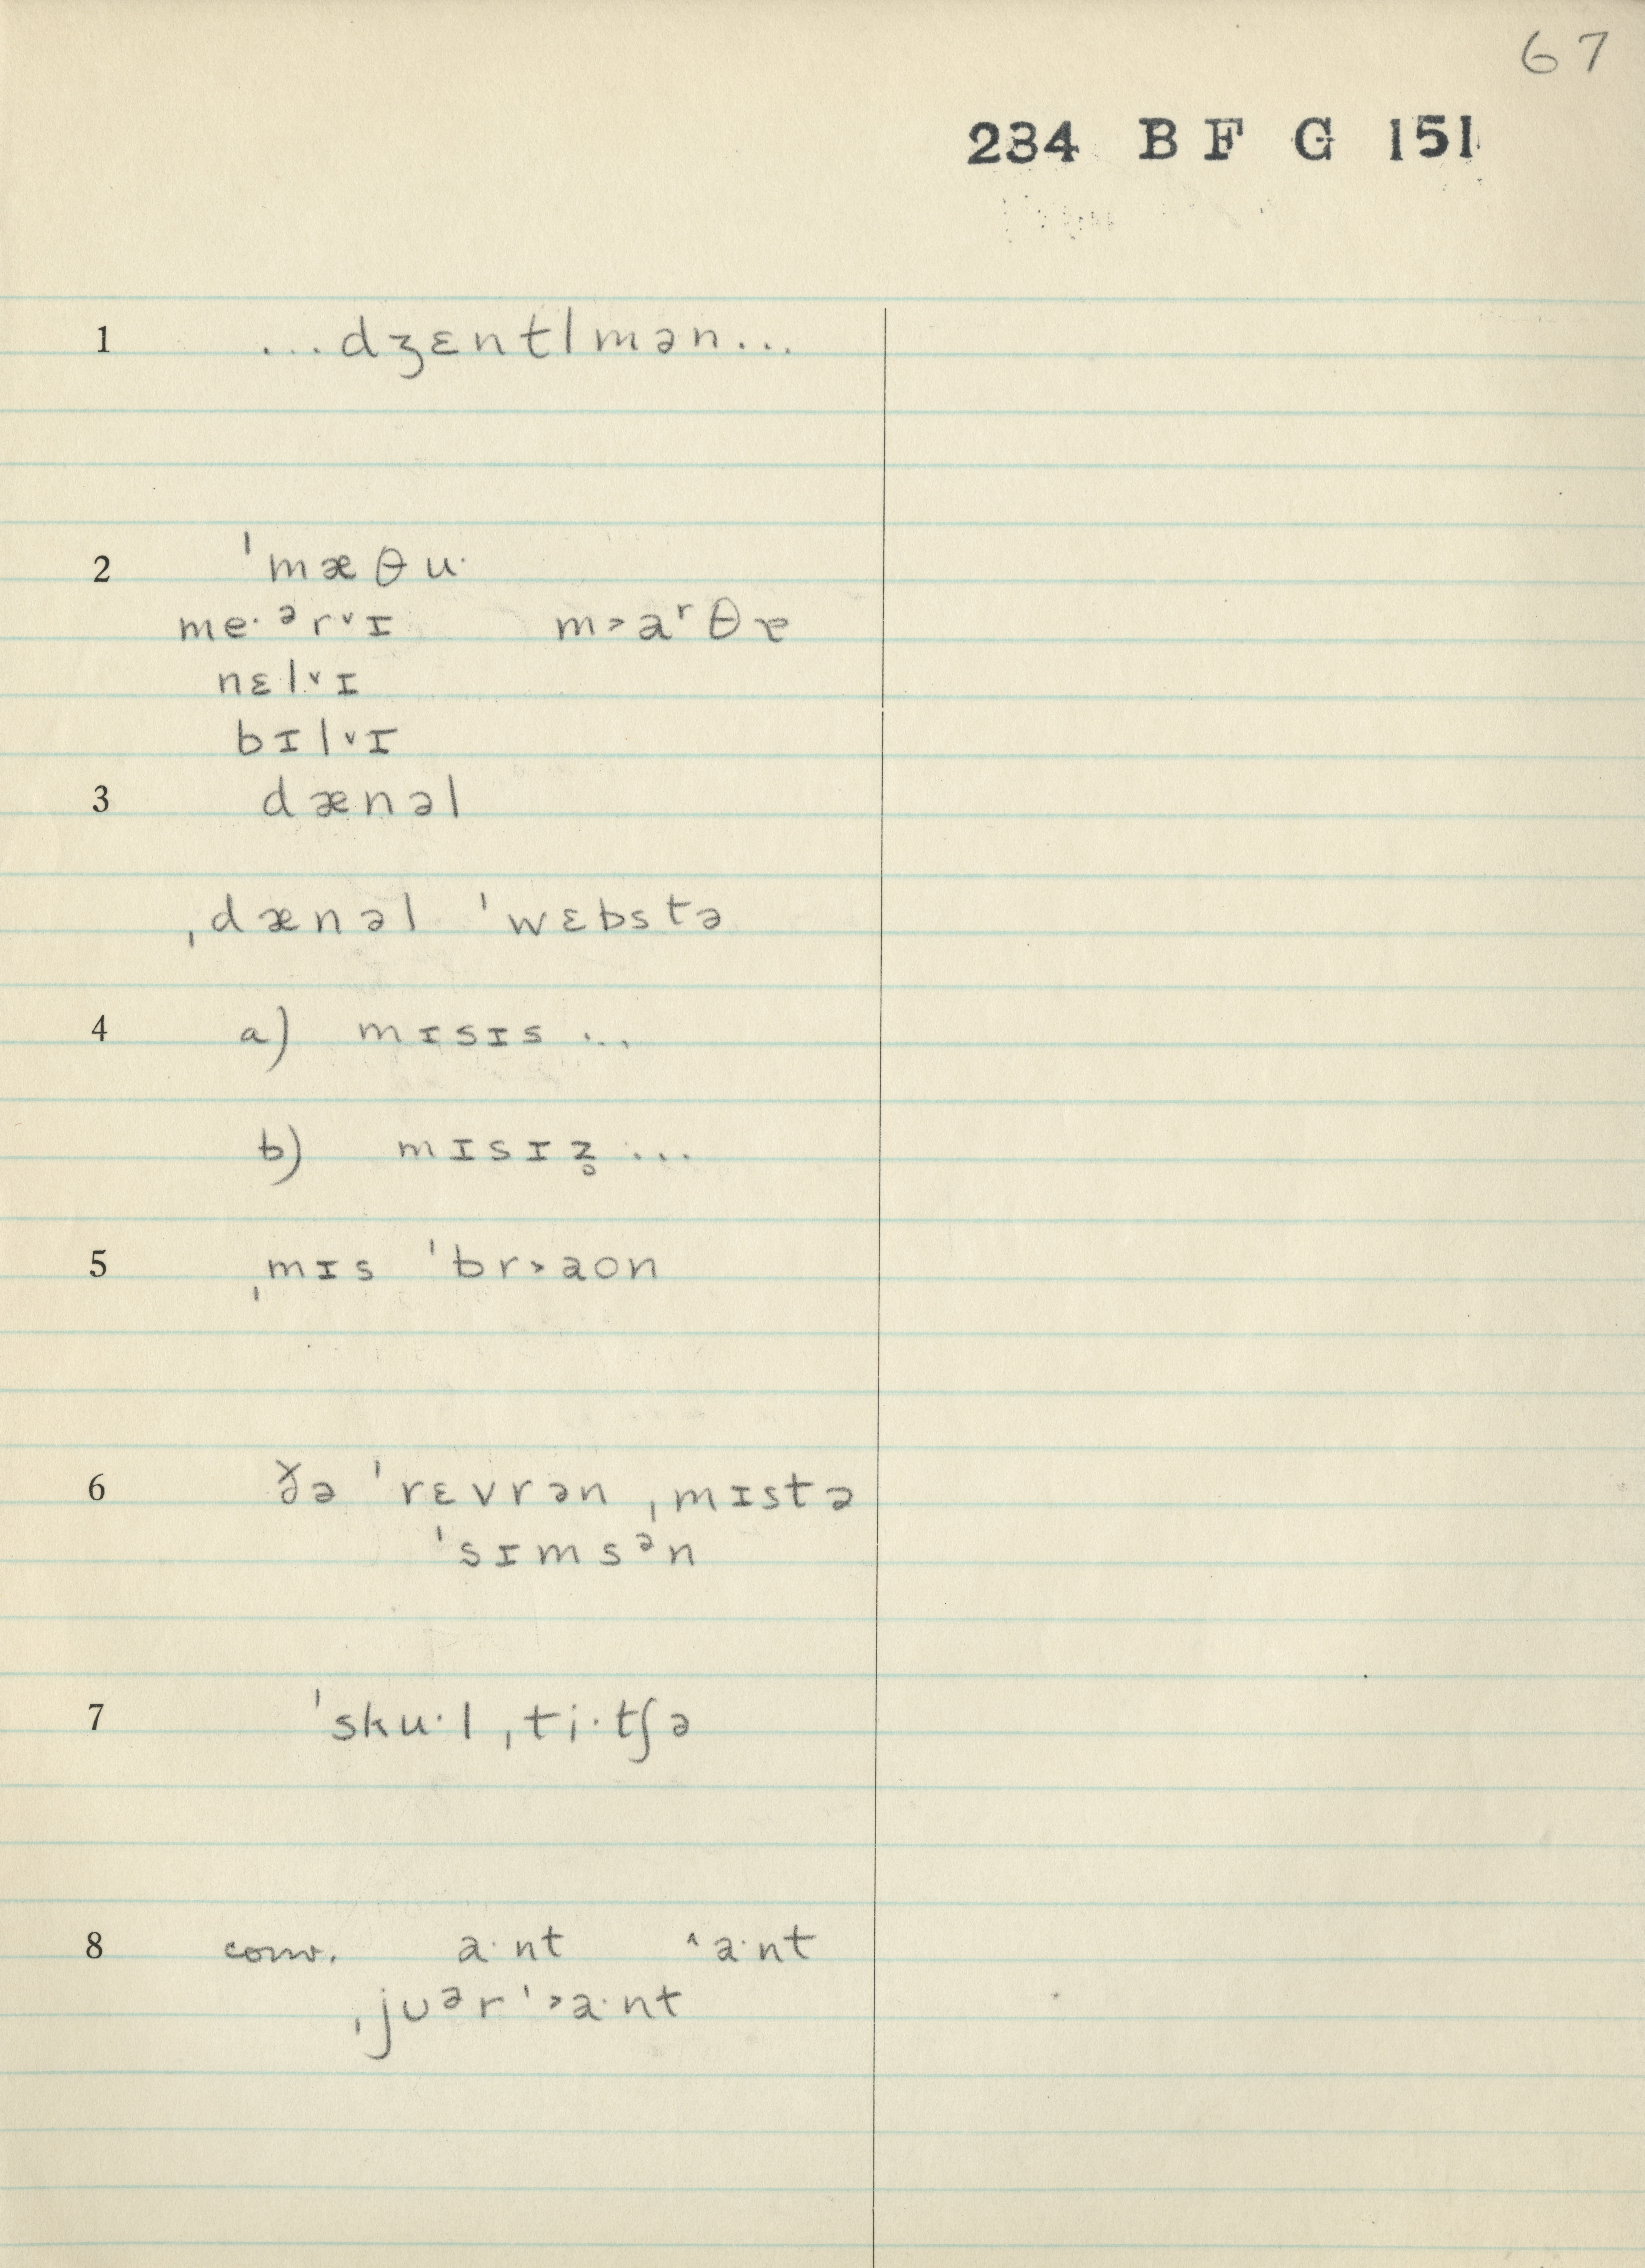 67
234 B F G 151
1 ...dʒɛntlmən...
2 ˈmæθu·
me·ᵊr˅ɪ m˃aʳθɐ
nɛl˅ɪ
bɪl˅ɪ
3 dænəl
ˌdænəl ˈwɛbstə
4 a) mɪsɪs ...
b) mɪsɪz̥ ...
5 ˌmɪs ˈbr˃aon
6 ðə ˈrɛvrən ˌmɪstə
ˈsɪmsᵊn
7 ˈsku·l ˌti·tʃə
8 conv. a·nt ˄a·nt
ˌjʊᵊr ˈ˃a·nt